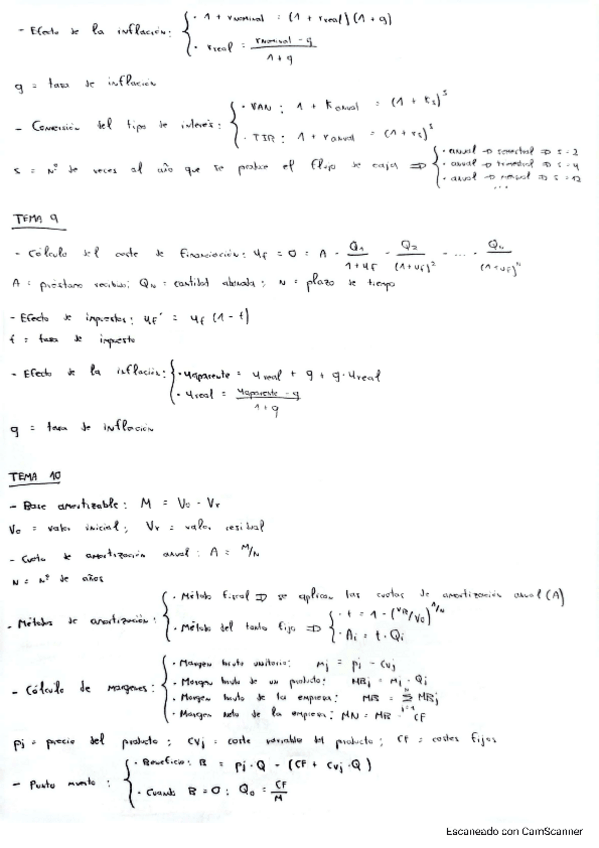 - Efecto de la inflación: { · 1 + rnominal = (1 + rreal)(1 + g)
· rreal = (rnominal - g)/(1 + g)
g = tasa de inflación
- Conversión del tipo de interés: { · VAN: 1 + Kanual = (1 + Ks)^s
· TIR: 1 + ranual = (1 + rs)^s
s = Nº de veces al año que se produce el flujo de caja ⇒ { · anual → semestral ⇒ s = 2
· anual → trimestral ⇒ s = 4
· anual → mensual ⇒ s = 12
...
TEMA 9
- Cálculo del coste de financiación: uf = 0 = A - Q1/(1 + uf) - Q2/(1+uf)^2 - ... - Qn/(1+uf)^n
A = préstamo recibido; QN = cantidad abonada; N = plazo de tiempo
- Efecto de impuestos: uf' = uf (1 - t)
t = tasa de impuesto
- Efecto de la inflación: { · uaparente = ureal + g + g·ureal
· ureal = (uaparente - g)/(1+g)
g = tasa de inflación
TEMA 10
- Base amortizable: M = Vo - Vr
Vo = valor inicial; Vr = valor residual
- Cuota de amortización anual: A = M/N
N = Nº de años
- Métodos de amortización: { · Método lineal ⇒ se aplican las cuotas de amortización anual (A)
· Método del tanto fijo ⇒ { · t = 1 - (VR/Vo)^1/N
· Ai = t · Qi
- Cálculo de margenes: { · Margen bruto unitario: mj = pj - cvj
· Margen bruto de un producto: MBj = mj · Qj
· Margen bruto de la empresa: MB = Σ MBj
· Margen neto de la empresa: MN = MB - CF
pj = precio del producto; cvj = coste variable del producto; CF = costes fijos
- Punto muerto: { · Beneficio: B = pj·Q - (CF + cvj·Q)
· Cuando B = 0: Qo = CF/M
Escaneado con CamScanner